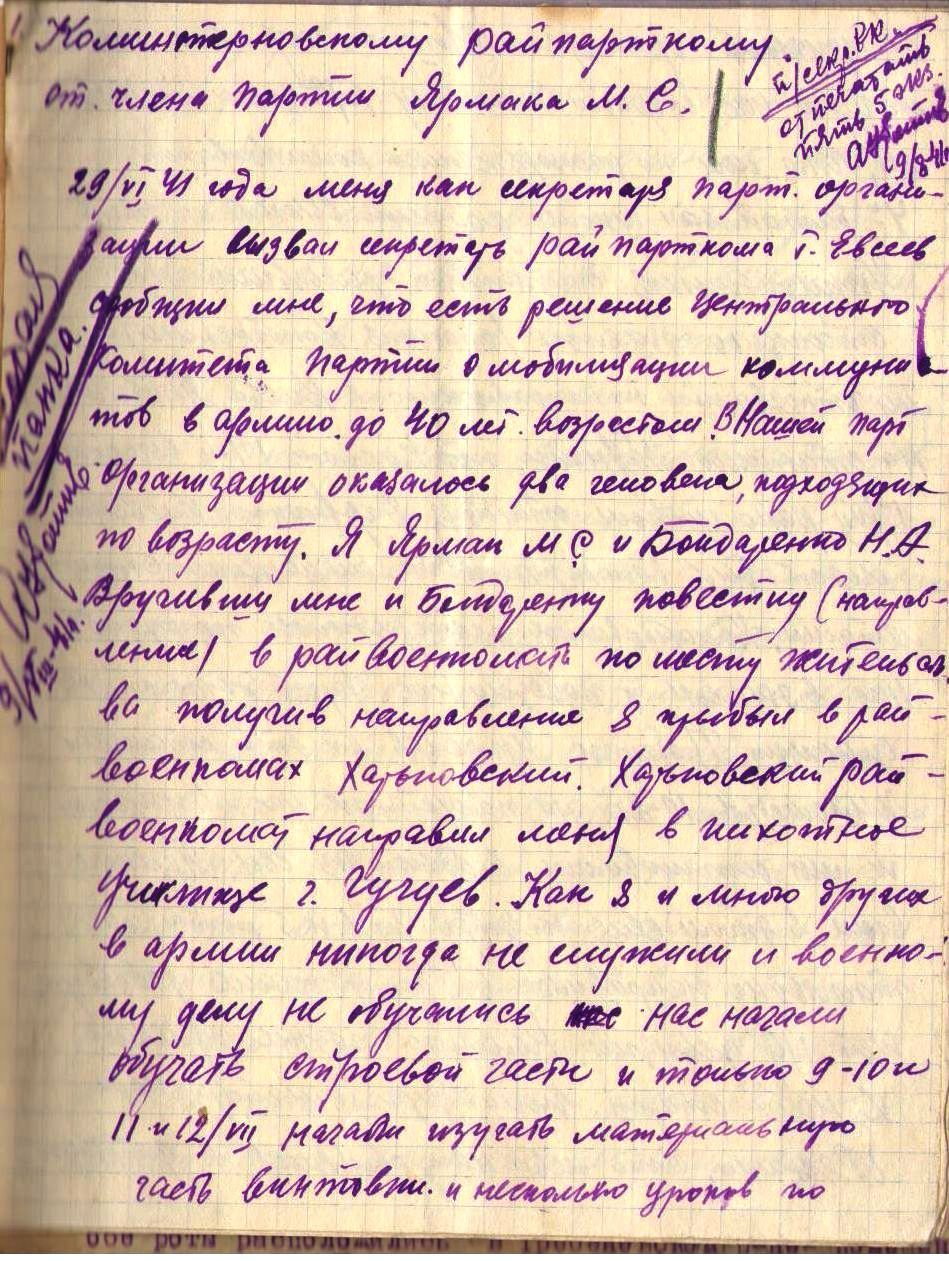 Коминтерновскому райпарткому
от члена партии Ярмака М. С.
п/секр. РК.
отпечатать
пять экз.
9/8-41
29/VI 41 года меня как секретаря парт. органи-
зации вызвал секретарь райпарткома т. Евсеев
сообщил мне, что есть решение Центрального
Комитета партии о мобилизации коммунис
тов в армию. до 40 лет. возрастом. В нашей парт
организации оказалось два человека, подходящих
по возрасту. Я Ярмак М С и Бондаренко Н. А.
Вручивши мне и Бондаренку повестку (направ-
ления) в райвоенкомать по месту жительст
ва получив направление я прибыл в рай-
военкомах Харьковский. Харьковский рай-
военкомат направил меня в пихотное
училище г. Чугуев. Как я и много других
в армии никогда не служили и военно-
му делу не обучались нас начали
обучать строевой части и только 9-10 и
11 и 12/VII начали изучать материальную
часть винтовки. и несколько уроков по
папка.
9/VIII-41г.
обе роты расположились в